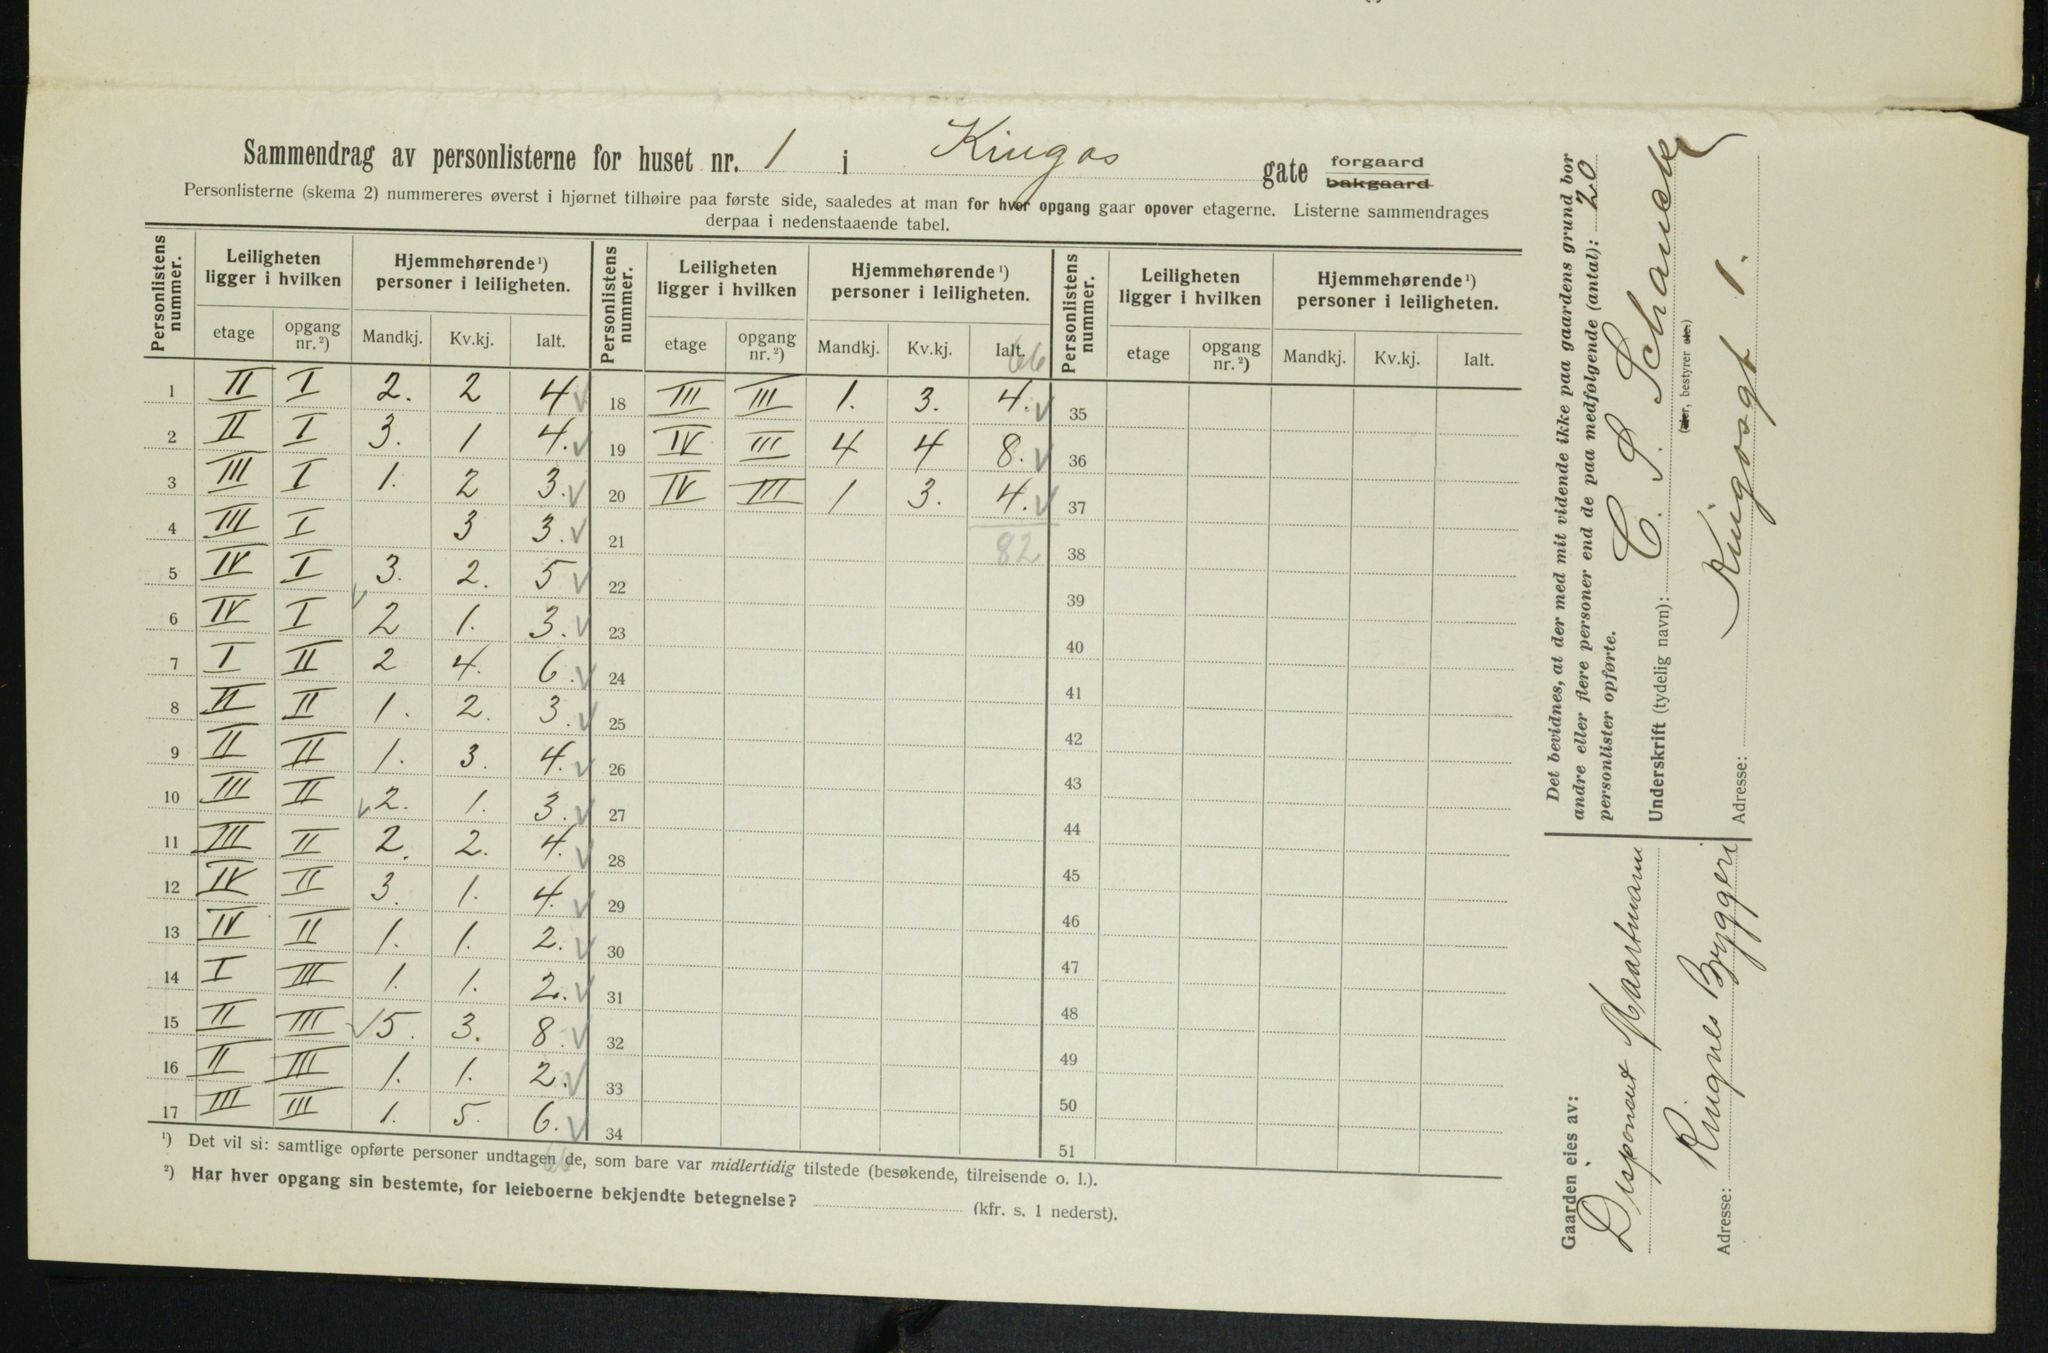 Sammendrag av personlisterne for huset nr. 1 i Kingos gate forgaard bakgaard
Personlisterne (skema 2) nummereres øverst i hjørnet tilhøire paa første side, saaledes at man for hver opgang gaar opover etagerne. Listerne sammendrages
derpaa i nedenstaaende tabel.
Personlistens nummer. | Leiligheten ligger i hvilken | Hjemmehørende ¹) personer i leiligheten. | Personlistens nummer. | Leiligheten ligger i hvilken | Hjemmehørende ¹) personer i leiligheten. | Personlistens nummer. | Leiligheten ligger i hvilken | Hjemmehørende ¹) personer i leiligheten.
etage | opgang nr. ²) | Mandkj. | Kv.kj. | Ialt. | etage | opgang nr. ²) | Mandkj. | Kv.kj. | Ialt. | etage | opgang nr. ²) | Mandkj. | Kv.kj. | Ialt.
66
1 II I 2. 2 4 √ 18 III III 1. 3. 4. √ 35
2 II I 3. 1 4. √ 19 IV III 4 4 8. √ 36
3 III I 1. 2 3. √ 20 IV III 1 3. 4. √ 37
4 III I 3 3. √ 21 82 38
5 IV I 3. 2. 5 √ 22 39
6 IV I √ 2 1. 3. √ 23 40
7 I II 2 4. 6. √ 24 41
8 II II 1. 2. 3. √ 25 42
9 II II 1. 3. 4. √ 26 43
10 III II √ 2. 1. 3. √ 27 44
11 III II 2. 2. 4. √ 28 45
12 IV II 3. 1. 4. √ 29 46
13 IV II 1. 1. 2. √ 30 47
14 I III 1. 1. 2. √ 31 48
15 II III √ 5. 3. 8. √ 32 49
16 II III 1. 1. 2. √ 33 50
17 III III 1. 5. 6. √ 34 51
66
¹) Det vil si: samtlige opførte personer undtagen de, som bare var midlertidig tilstede (besøkende, tilreisende o. l.).
²) Har hver opgang sin bestemte, for leieboerne bekjendte betegnelse? (kfr. s. 1 nederst).
Det bevidnes, at der med mit vidende ikke paa gaardens grund bor
andre eller flere personer end de paa medfølgende (antal): 20
personlister opførte.
Underskrift (tydelig navn): C. S. Schancke
(eier, bestyrer etc.)
Adresse: Kingosgt 1.
Gaarden eies av:
Disponent Maartmann
Adresse: Ringnes Bryggeri